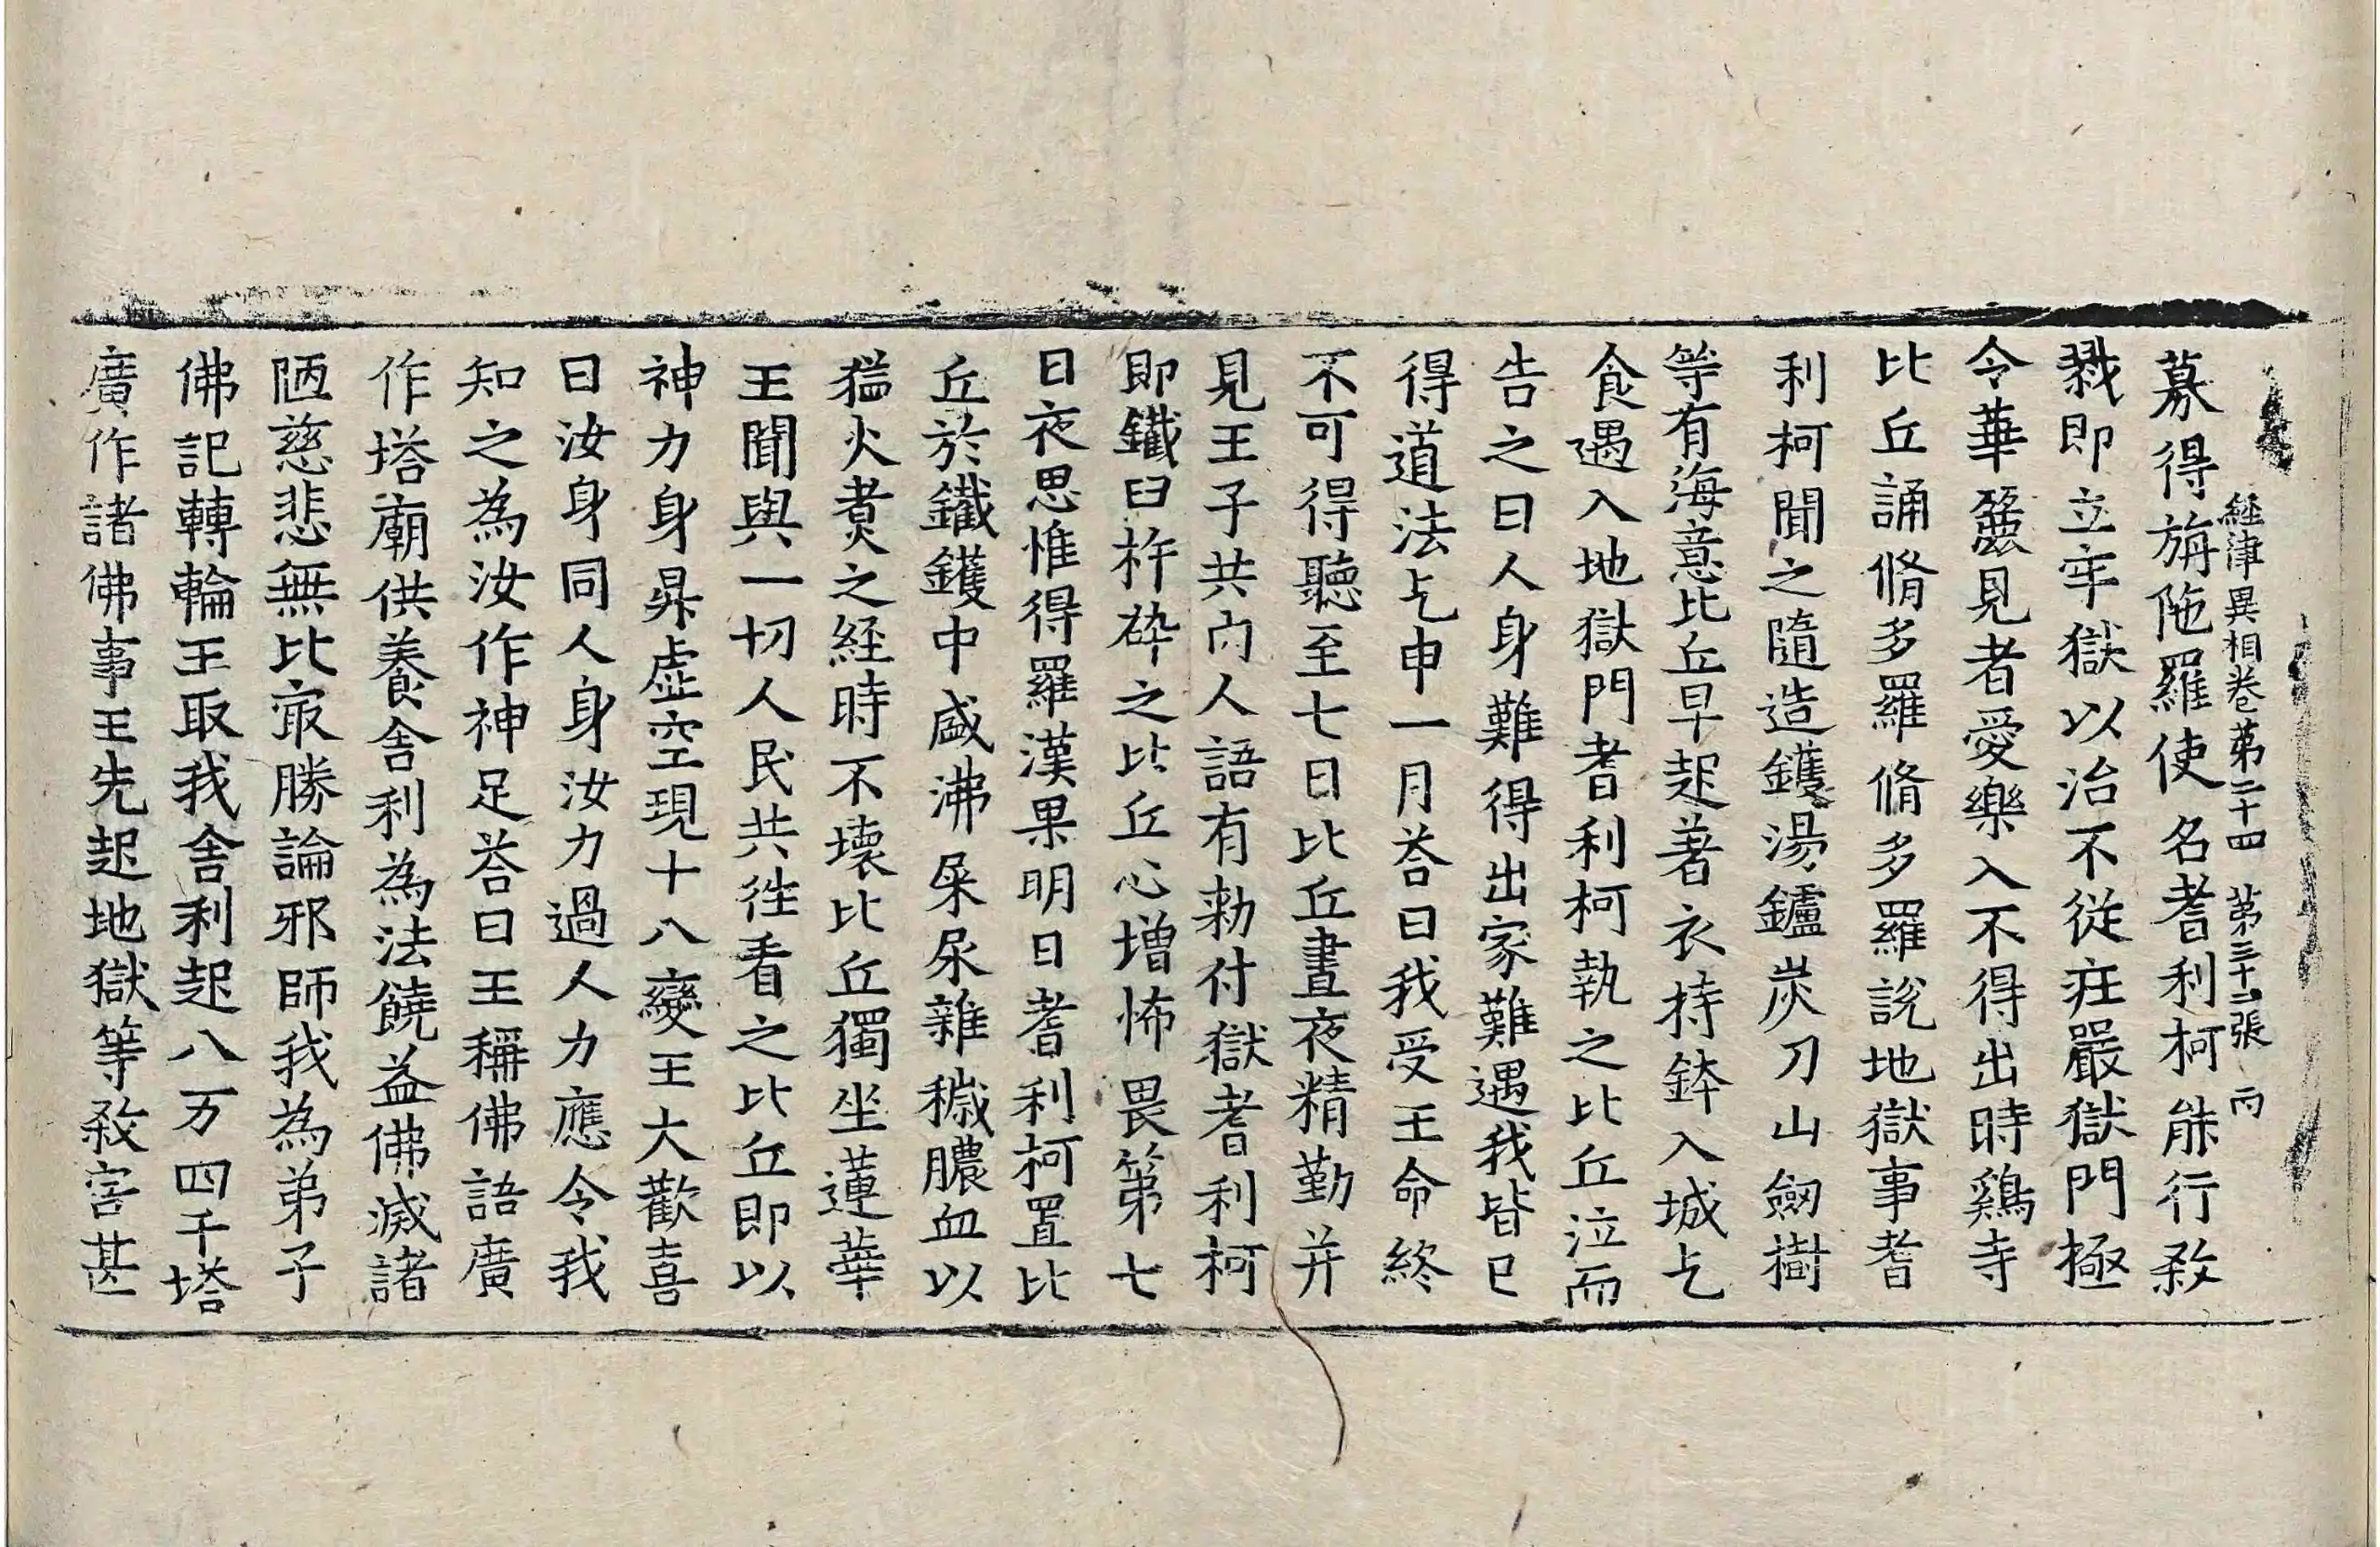 経津異相卷第二十四　第三十二張　丙
募得旃陁羅使名耆利柯能行煞
戮即立牢獄以治不從㽵嚴獄門極
令華麗見者愛樂入不得出時鷄寺
比丘誦脩多羅脩多羅說地獄事耆
利柯聞之隨造鑊湯鑪炭刀山劒樹
等有海意比丘早起著衣持鉢入城乞
食遇入地獄門耆利柯執之比丘泣而
告之曰人身難得出家難遇我皆已
得道法乞申一月荅曰我受王命終
不可得聽至七日比丘晝夜精勤并
見王子共內人語有勑付獄耆利柯
即鐵臼杵碎之比丘心增怖畏第七
日夜思惟得羅漢果明日耆利柯置比
丘於鐵鑊中盛沸屎尿雜穢膿血以
猛火煑之経時不壞比丘獨坐蓮華
王聞與一切人民共徃看之比丘即以
神力身昇虛空現十八變王大歡喜
曰汝身同人身汝力過人力應令我
知之為汝作神足荅曰王稱佛語廣
作塔廟供養舍利為法饒益佛滅諸
陋慈悲無比㝡勝論邪師我為弟子
佛記轉輪王取我舍利起八万四千塔
廣作諸佛事王先起地獄等煞害甚